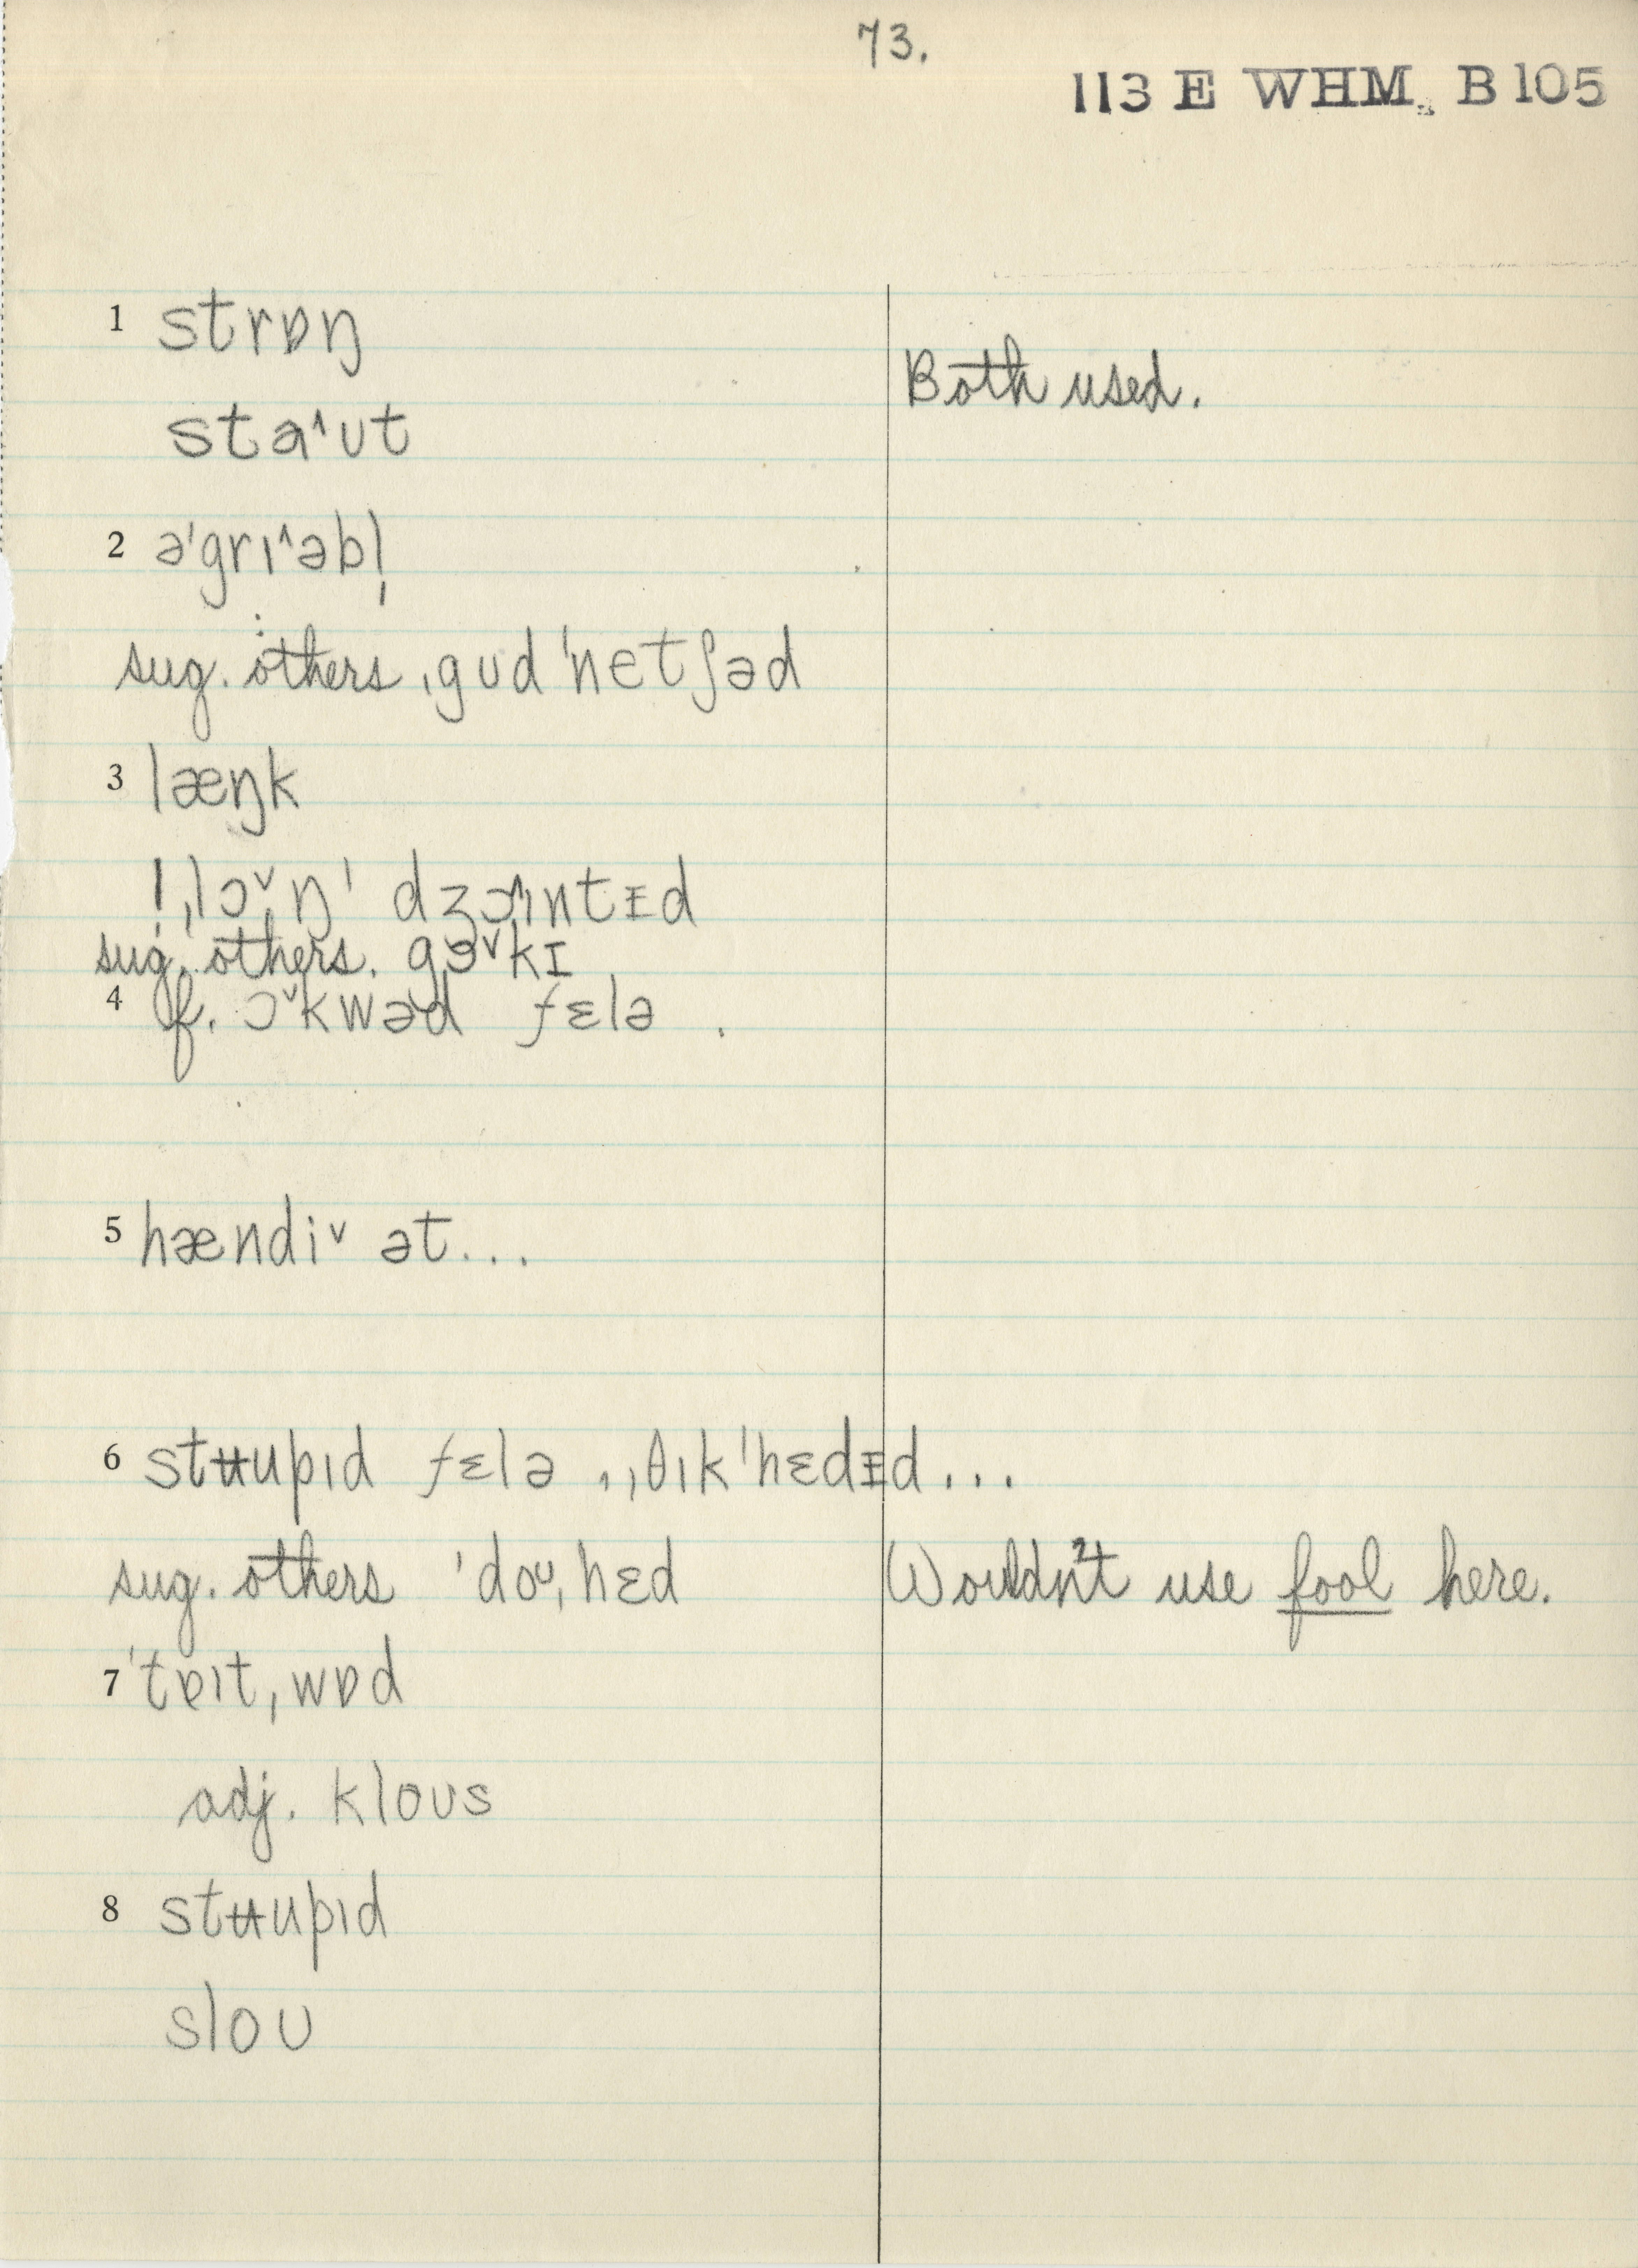 73.
113 E WHM. B 105
1 strɒŋ
Both used.
staˆʊt
2 əˈgrɪˆəbl̩
sug. others: ˌgʊd ˈnetʃəd
3 læŋk
! ˌlɔˇŋˈ dʒɔˆɪntɪd
sug. others. gɔˇkɪ
4 f. ɔˇkwəd fɛlə.
5 hændiˇ ət...
6 stʉupɪd fɛlə, ˌθɪkˈhɛdɪd...
sug. others ˈdoʊˌhɛd
Wouldn't use fool here.
7 ˈtɐɪtˌwɒd
adj. kloʊs
8 stʉupɪd
sloʊ